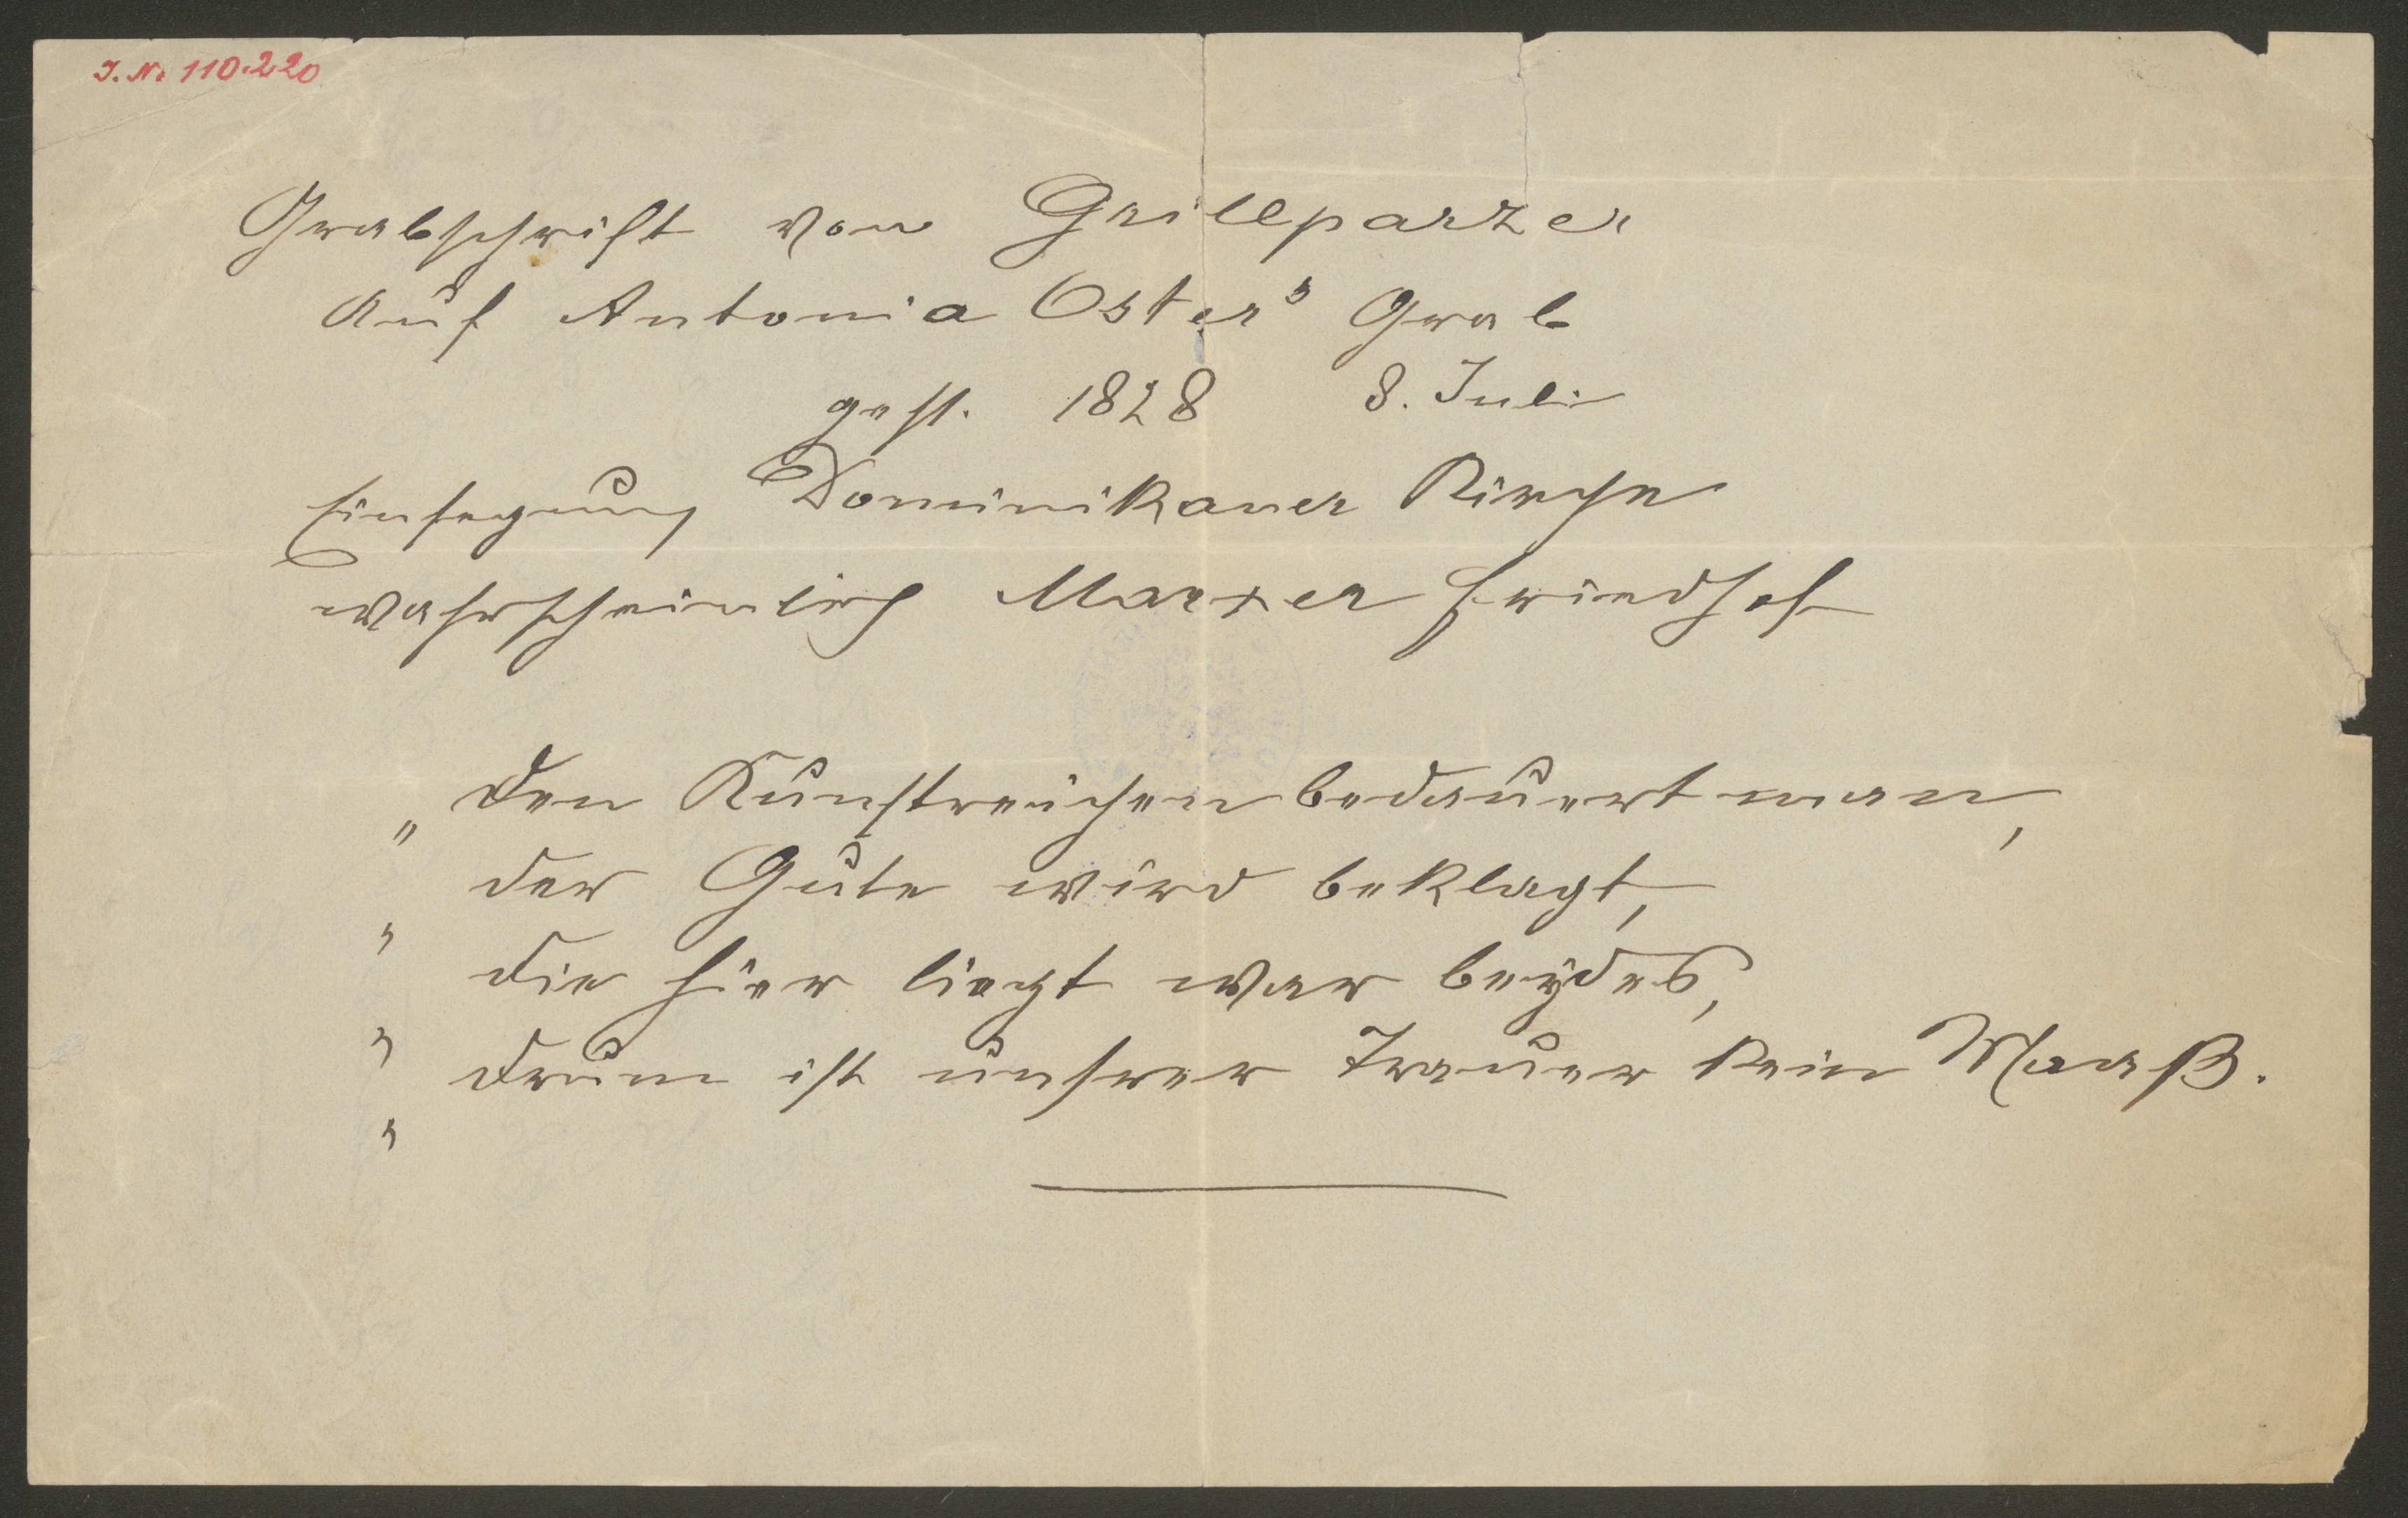 I. N. 110.220
Grabschrift von Grillparzer
auf Antonia Oster's Grab
gest. 1828 8. Juli
Einsegnung Dominikaner Kirche
wahrscheinlich Marxer Friedhof
„ Den Kunstreichen bedauert man,
„ der Gute wird beklagt,
„ die hier liegt war beydes,
„ drum ist unsrer Trauer kein Maaß.